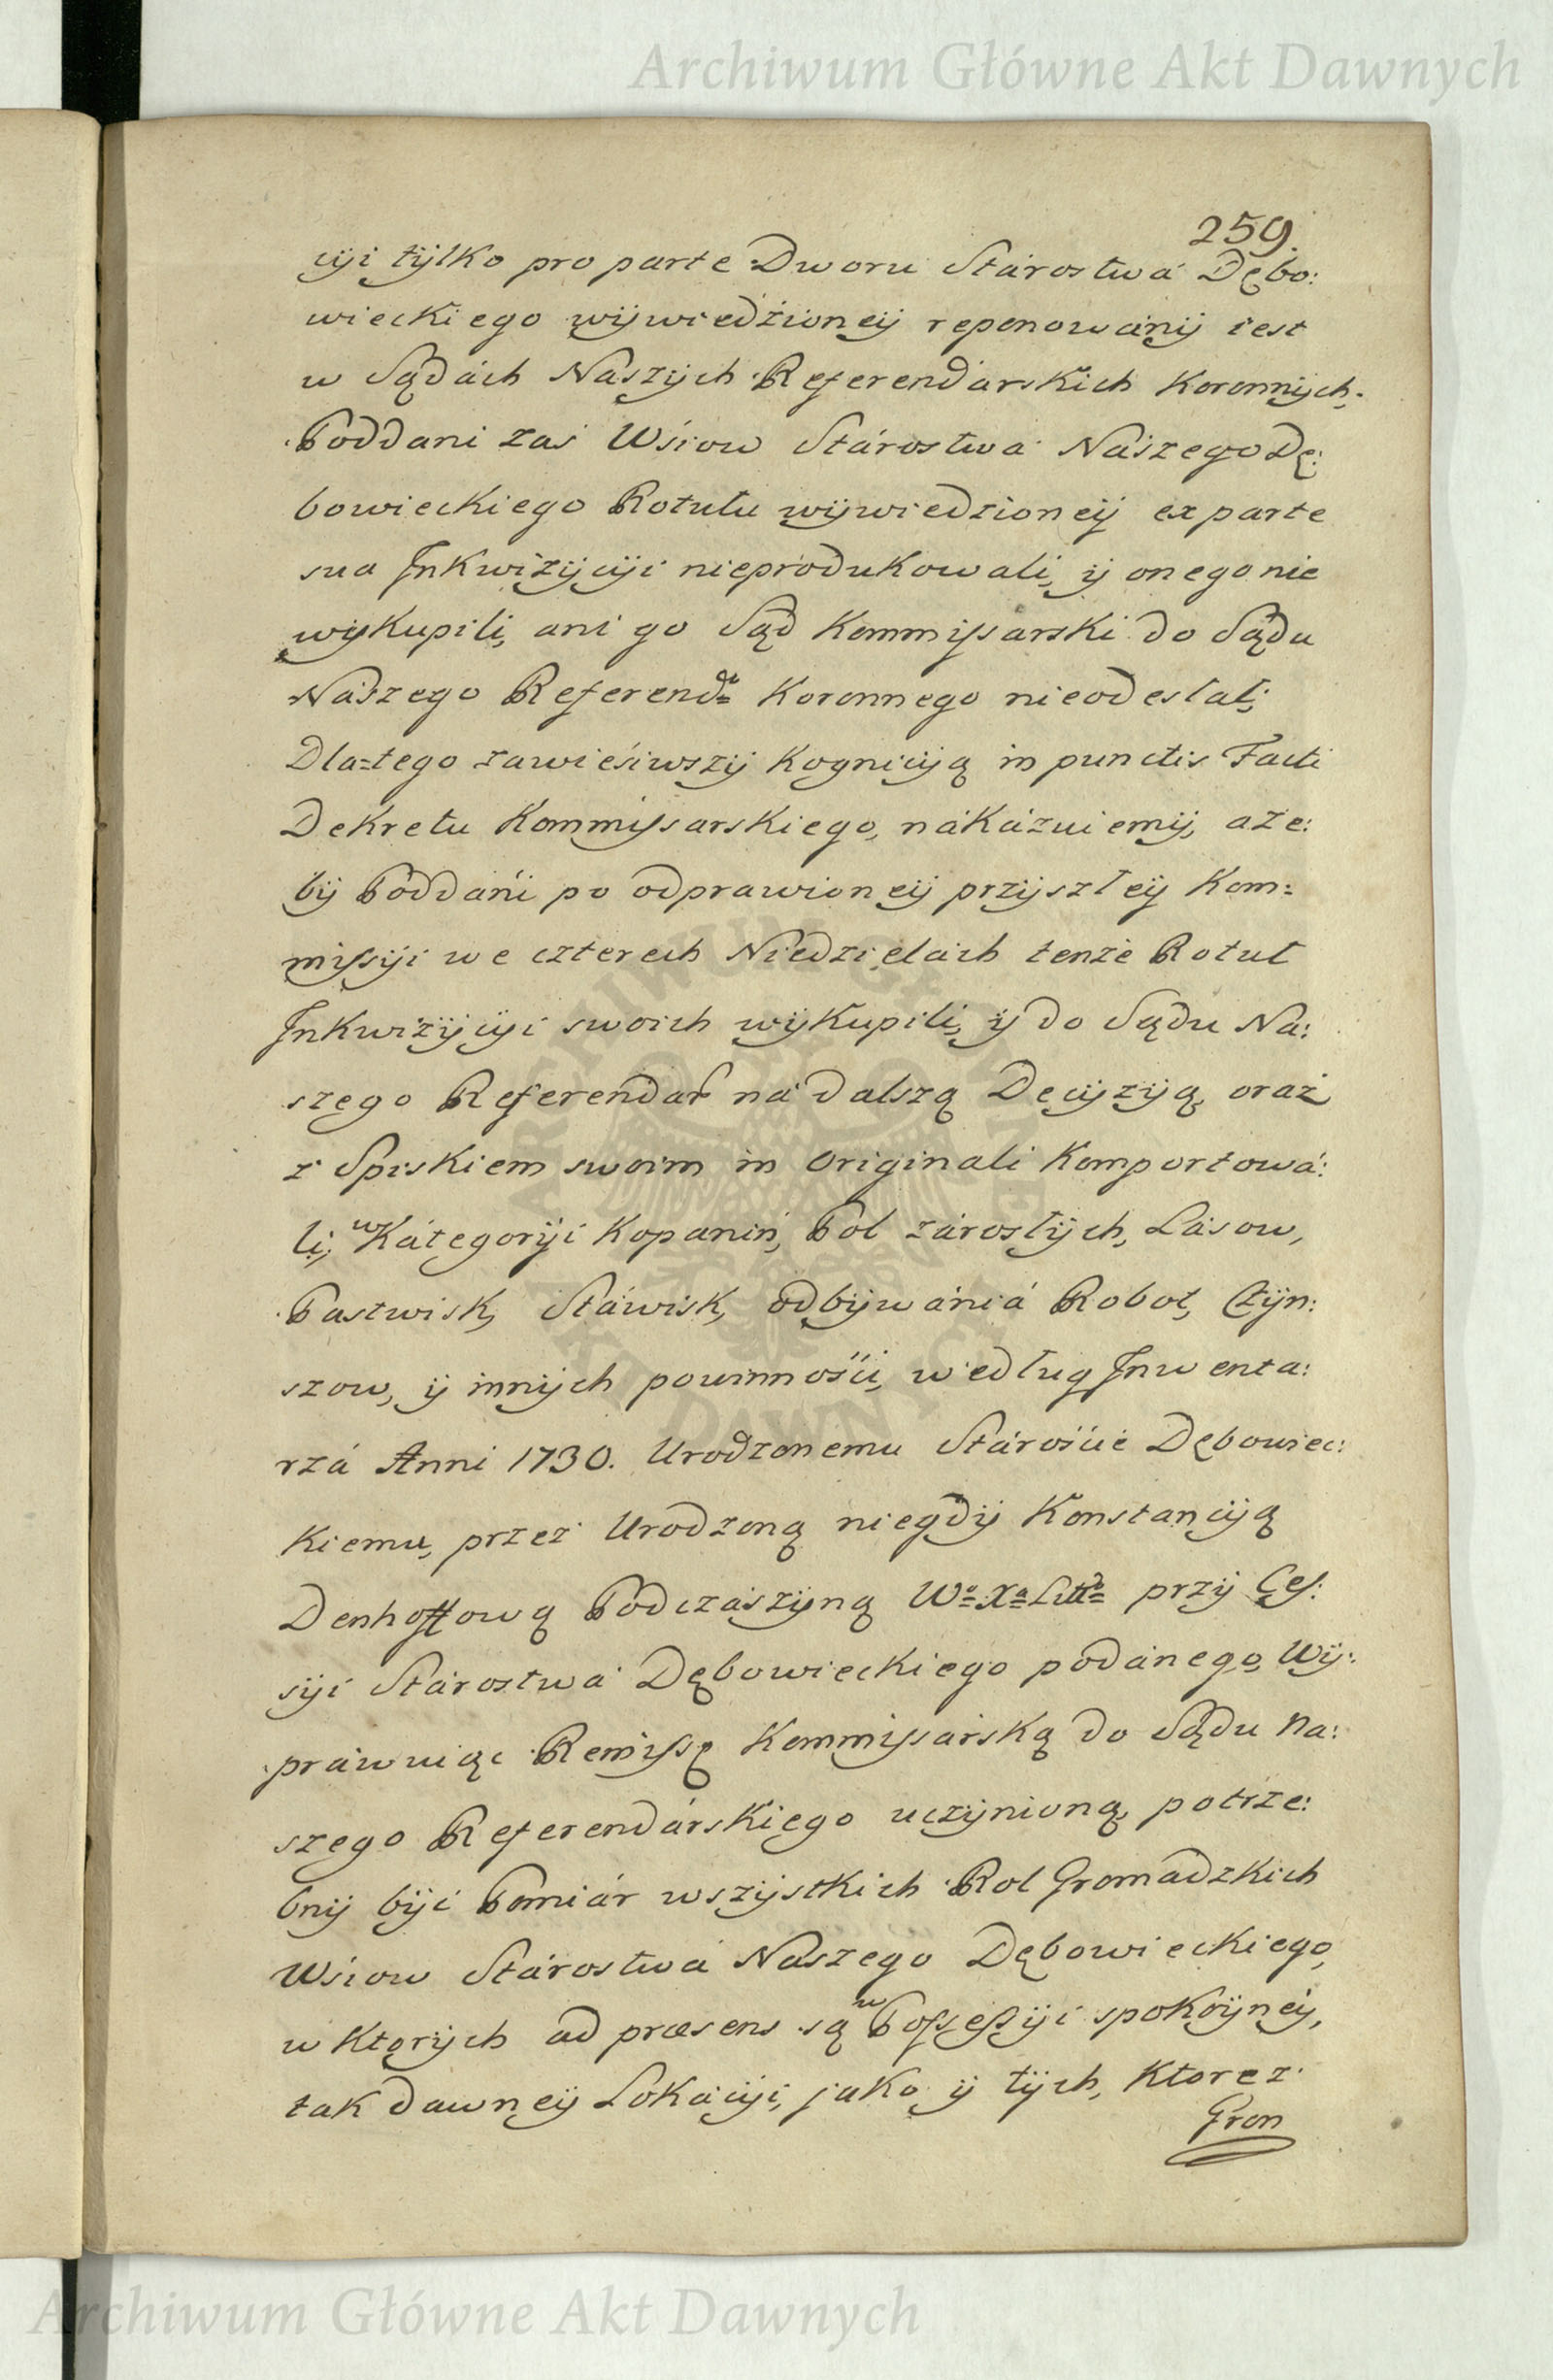 Archiwum Główne Akt Dawnych
259.
cÿi tÿlko pro parte Dworu Stárostwá Dębo:
wieckiego wÿwiedźioneÿ reponowánÿ iest
w Sądách Nászÿch Referendárskich Koronnÿch.
Poddani zaś Wśiow Stárostwa Nászego Dę:
bowieckiego Rotułu wÿwiedzioneÿ ex parte
sua Jnkwizÿcÿi nieprodukowali, ÿ onego nie
wÿkupili, ani go Sąd Kommissarski do Sądu
Nászego Referendᵒ Koronnego nieodesłał;
Dla=tego zawieśiwszÿ Kognicÿą in punctis Facti
Dekretu Kommissarskiego, nákázuiemÿ, aże:
bÿ Poddáni po odprawioneÿ przÿszłeÿ Kom=
missÿi we czterech Niedzielách tenże Rotuł
Jnkwizÿcÿi swoich wÿkupili, ÿ do Sądu Na:
szego Referendar ná dalszą Decÿzÿą, oraz
z Spiskiem swoim in Originali Komportowá:
li, w Kátegorÿi Kopanin, Pol zárosłÿch, Lásow,
Pastwisk, Stáwisk, odbÿwániá Robot, Czÿn:
szow, ÿ innÿch powinnośći, według Jnwenta:
rzá Anni 1730. Urodzonemu Stárośćie Dębowiec:
kiemu, przez Urodzoną niegdÿ Konstancÿą
Denhoffową Podczászÿną Wᵒ Xᵃ Littᵒ przÿ Ces:
sÿi Stárostwá Dębowieckiego podánego, Wÿ:
práwuiąc Remissę Kommissárską do Sądu Na:
szego Referendárskiego uczÿnioną, potrze:
bnÿ bÿć Pomiár wszÿstkich Rol Gromadzkich
Wśiow Stárostwá Naszego Dębowieckiego,
w ktorÿch ad præsens są w Possessÿi spokoÿneÿ,
tak dawneÿ Lokácÿi, jako ÿ tÿch, ktore z
Gron
Archiwum Główne Akt Dawnych